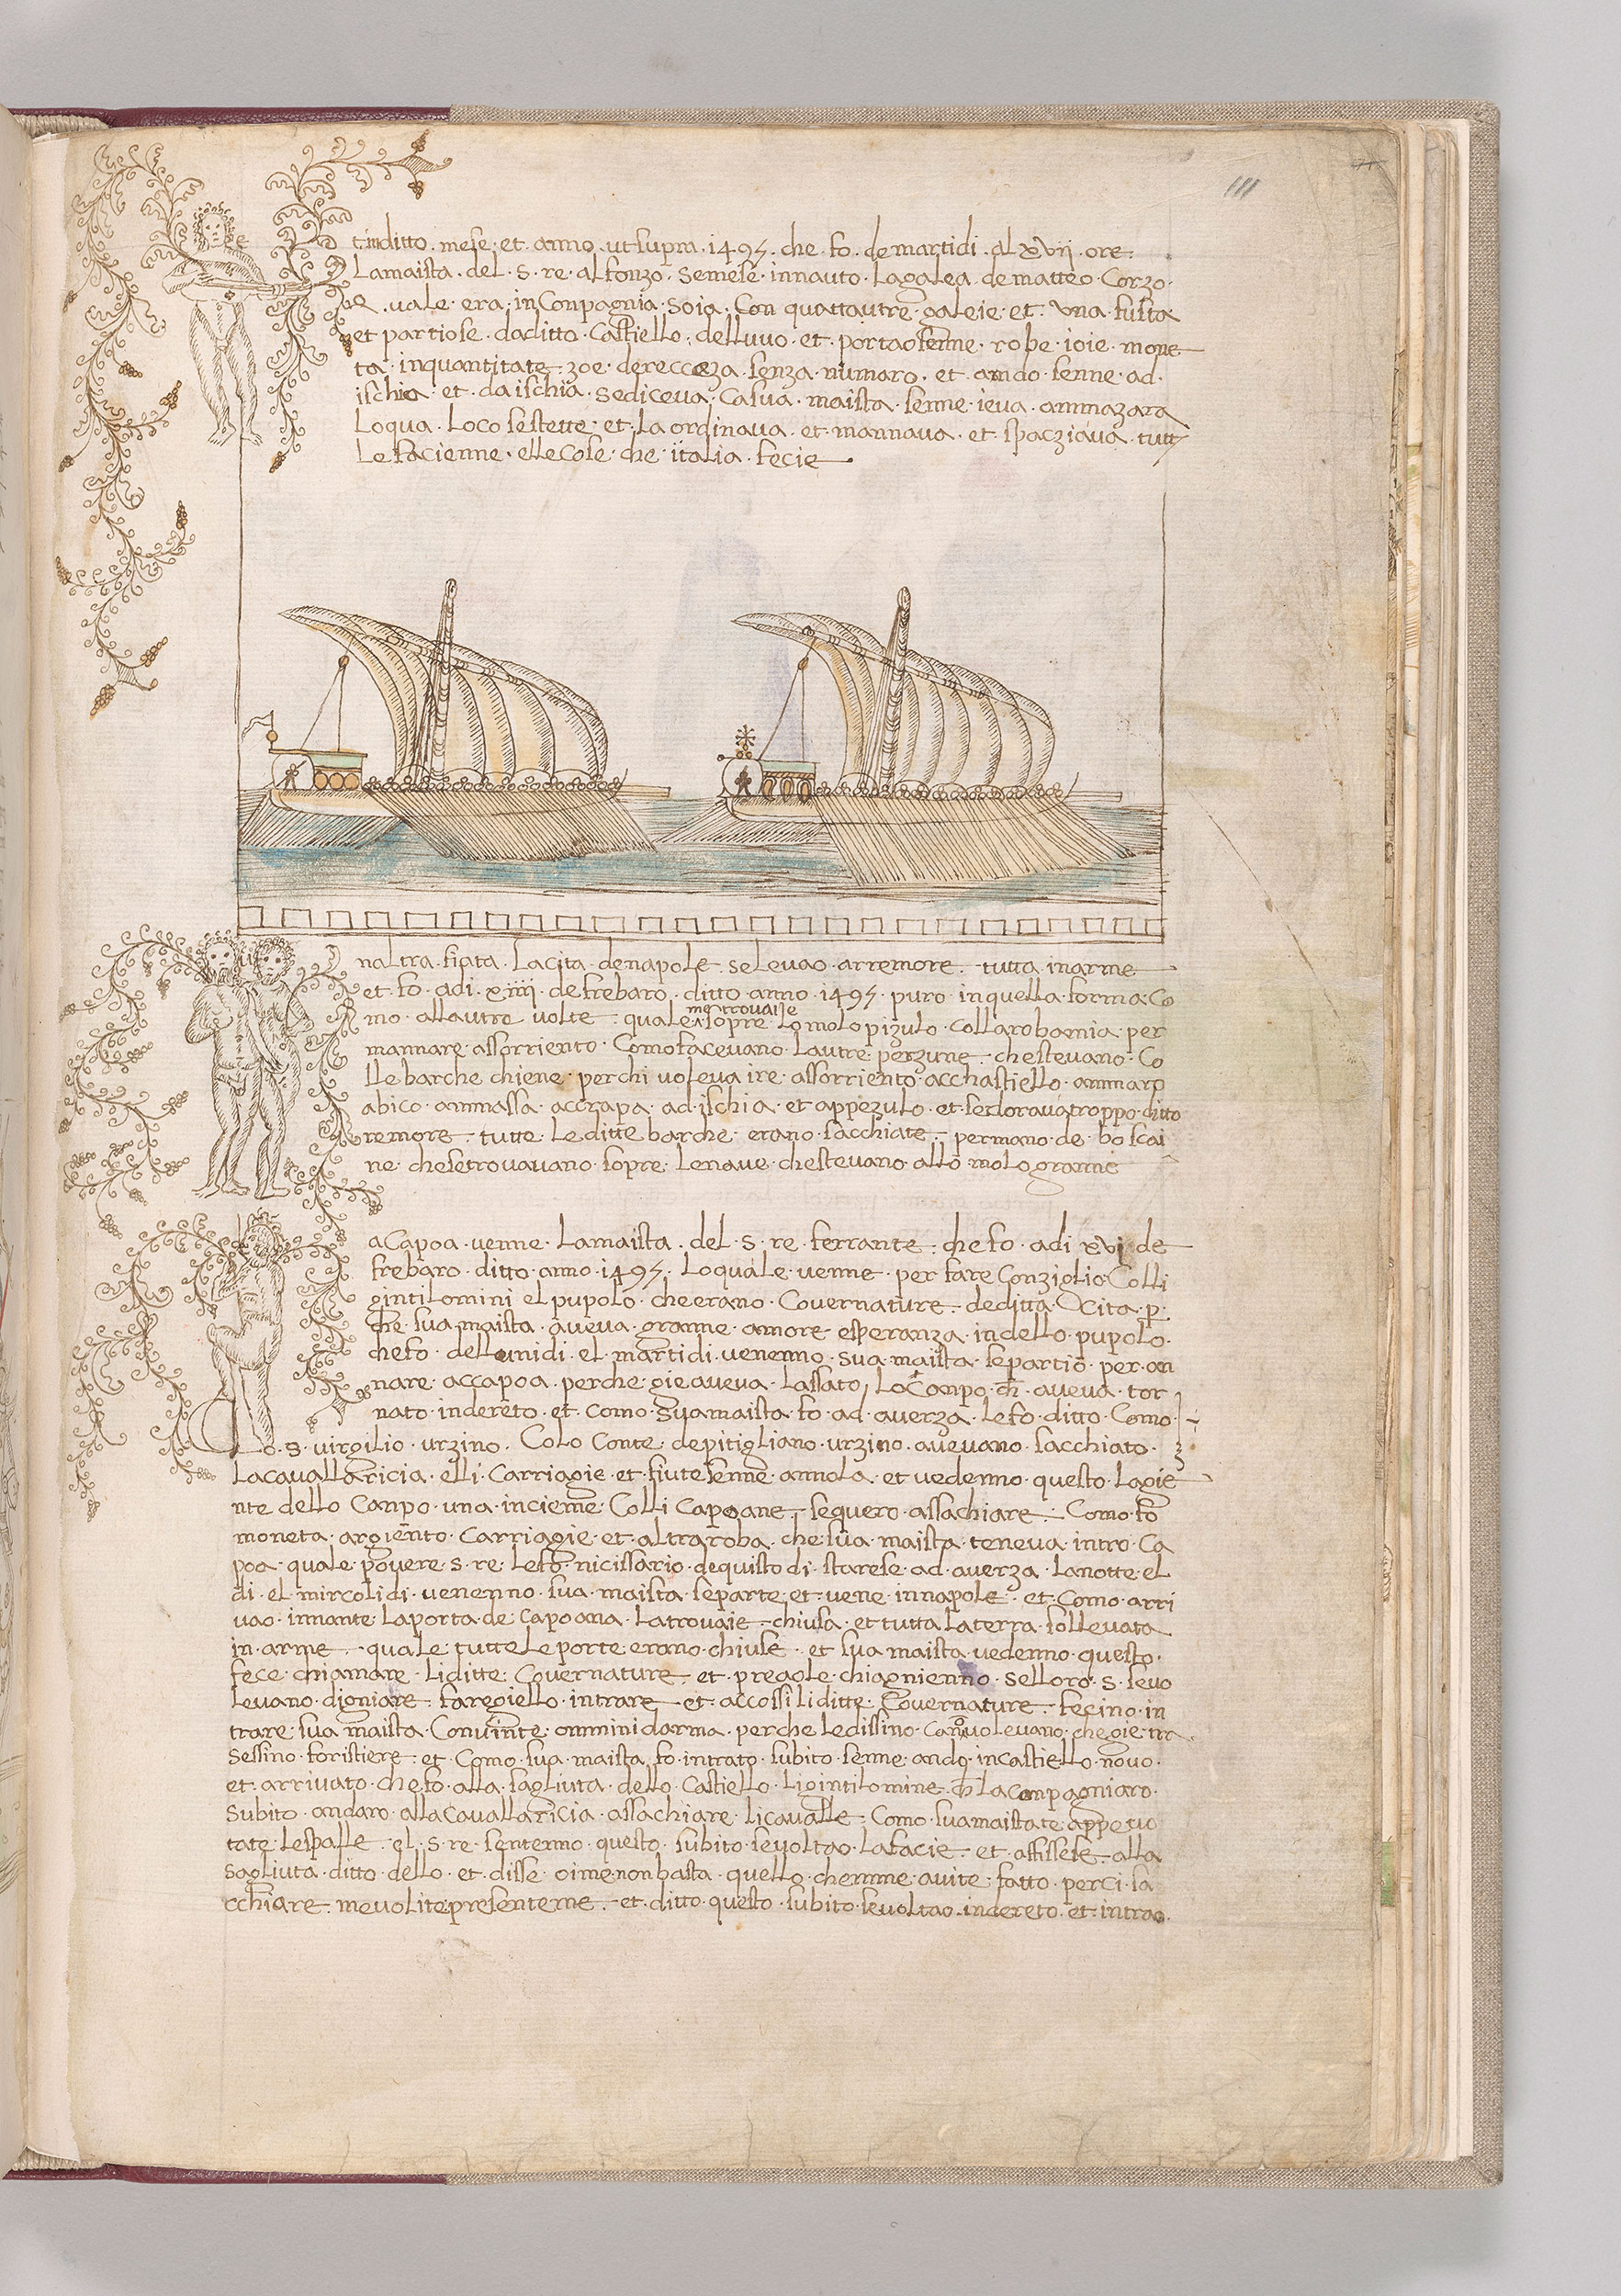 111
t inditto · mese · et · anno · ut supra · 1495 · che · fo · de martidi · al xvii · ore
La maista · del · s · re · alfonzo · semese · innauto · la galea de matteo · Corzo ·
Q · uale · era · in Conpagnia · soia · Con quattautre · galeie · et · una · fusta
et partiose · da ditto · Castiello · delluuo · et · portaosenne · robe · ioie · mone
ta · inquantitate · zoe · derecceza · senza · numaro · et · ando · senne · ad ·
ischia · et · da ischia · sediceva · Ca sua · maista · senne · ieva · ammazara
Loqua · Loco sestette · et · La ordinava · et · mannava · et · spacziava · tutt
Le facienne · elle Cose · che · iitalia · fecie
naltra · fiata · La cita · denapole · se Levao · arremore · tutta inarme
et · fo · adi · xiiii · de frebaro · ditto · anno · 1495 · puro · inquella · forma · Co
mo · allautre · volte · quale me trovaie sopre · Lo molo pizulo · Colla robamia · per
mannare · assorriento · Como facevano · Lautre · perzune · che stevano · Co
lle barche chiene · perchi voleva ire · assorriento · acchastiello · ammaro
abico · ammassa · accrapa · ad ischia · et appezulo · et · sedorava troppo · ditto
remore · tutte · Le ditte barche · erano · sacchiate · permano · de · boscai
ne · chesetrovavano · sopre · Lenave · chestevano · allo · molo granne
a Capoa · venne · La maista · del · s · re · ferrante · che fo · adi xvi de
frebaro · ditto · anno · 1495 · Lo quale · venne · per fare Conziglio · Colli
gintilomini el pupolo · che erano · Covernature · deditta · Cita · p
che · sua maista · aveva · granne · amore · esperanza · indello · pupolo ·
chefo · dellunidi · el · martidi · venenno · sua · maista · separtio · per · an
nare · accapoa · perche · gie aveva · Lassato · Lo Canpo · ch · aveva · tor
nato · indereto · et · Como · sua maista · fo · ad · averza · Lefo · ditto · Como ·
Lo · s · virgilio · urzino · Colo Conte · depitigliano · urzino · avevano · sacchiato ·
La cavallaricia · elli · Carriagie · et · fiutesenne · annola · et vedenno · questo · Lagie
nte dello Canpo · una · incieme · Colli Capoane · sequero · assachiare · Como · fo
moneta · argiento · Carriagie · et · altra roba · che · sua · maista · teneva · intro · Ca
poa · quale · povere · s · re · Lefo · nicissario · dequisto di · starese · ad · averza · La notte · el
di · el · mircolidi · venenno · sua · maista · separte · et · vene · innapole · et · Como · arri
vao · innante · La porta · de · Capoana · La trovaie · chiusa · et tutta La terra · sollevata
in · arme · quale · tutte Le porte · erano · chiuse · et sua maista vedenno · questo ·
fece · chiamare · Li ditte · Covernature · et · pregole · chiagnienno · selloro · s · sevo
Levano · digniare · faregiello · intrare · et · accossi Li ditte · Covernature · fecino · in
trare · sua maista · Con vinte · ommini darma · perche Ledissino · Ca no volevano · che gie · tra
sessino · foristiere · et · Como · sua · maista · fo · intrato · subito · senne · ando · in Castiello · novo ·
et · arrivato · chefo · alla · sagliuta · dello · Castiello · Li gintilomine · ch La Conpagniaro ·
subito · andaro · alla Cavallaricia · assachiare · Li cavalle · Como · sua maistate · appe vo
tate · Lespalle · el · s · re · sentenno · questo · subito · sevoltao · La facie · et · affissese · alla
sagliuta · ditto · dello · et · disse · oime · non basta · quello · chemme · avite · fatto · perci · sa
cchiare · mevolite presenteme · et · ditto · questo · subito · sevoltao · indereto · et · intrao ·